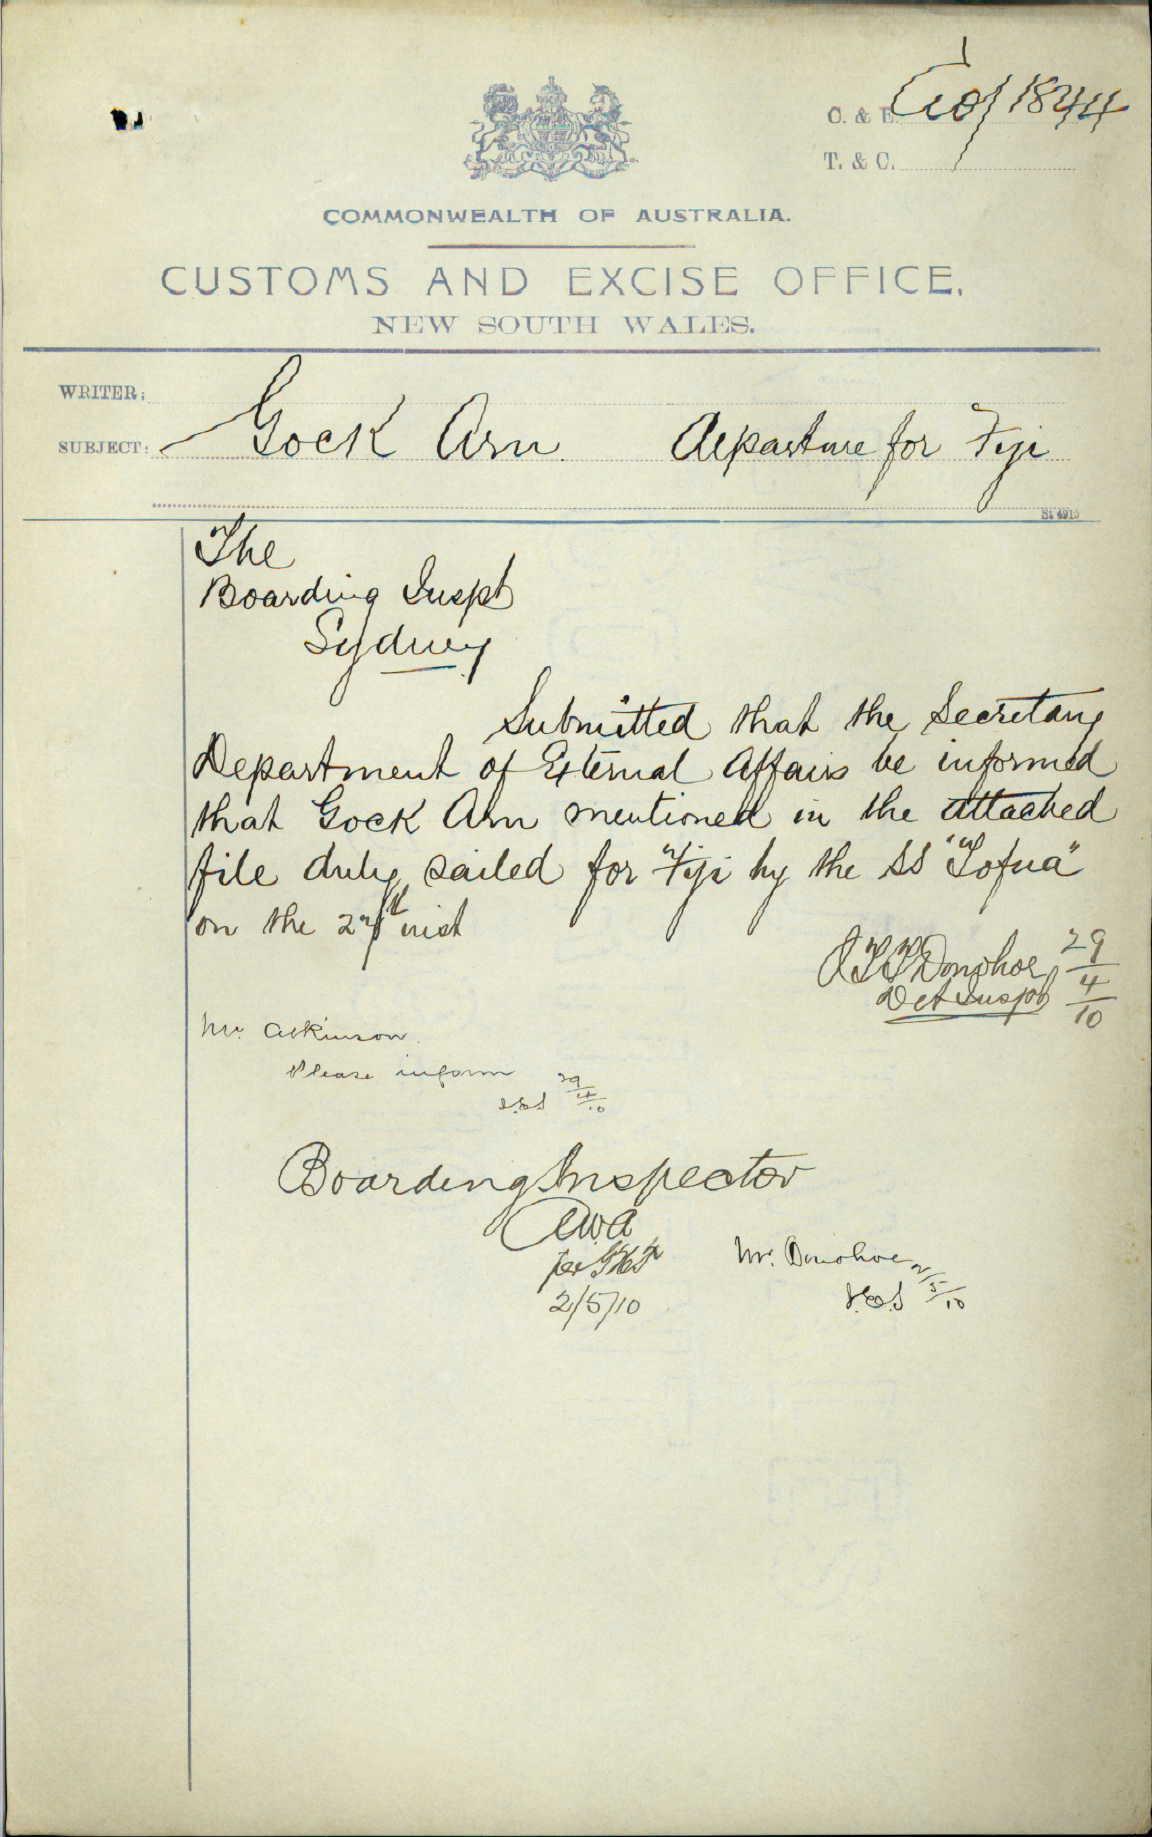 C. & E. C10/1844
T. & C.
COMMONWEALTH OF AUSTRALIA.
CUSTOMS AND EXCISE OFFICE,
NEW SOUTH WALES.
WRITER:
SUBJECT: Gock Arn Departure for Fiji
St 4915
The
Boarding Inspt
Sydney
Submitted that the Secretary
Department of External Affairs be informed
that Gock Arn mentioned in the attached
file duly sailed for Fiji by the SS "Tofua"
on the 27th inst
Donohoe 29/4/10
Det Inspr
Mr. Atkinson
Please inform
29/4/10
Boarding Inspector
AWA
per
2/5/10
Mr. Donohoe
2/5/10